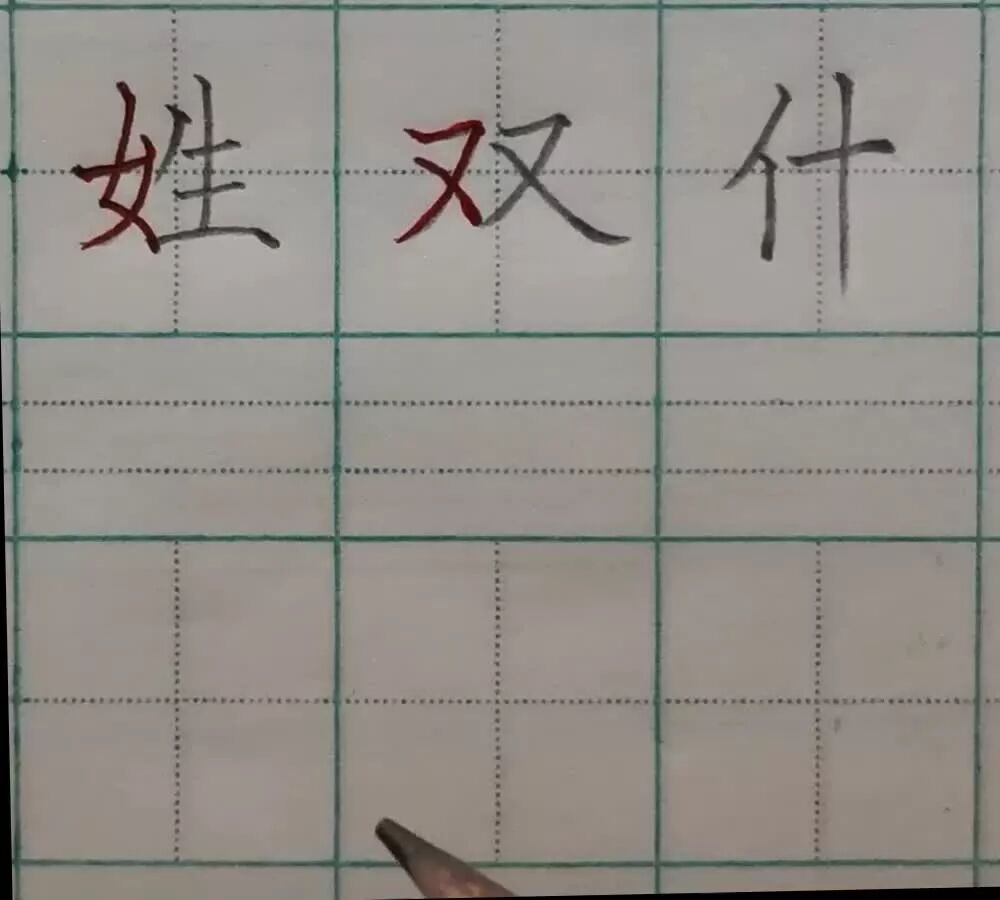 姓 双 什